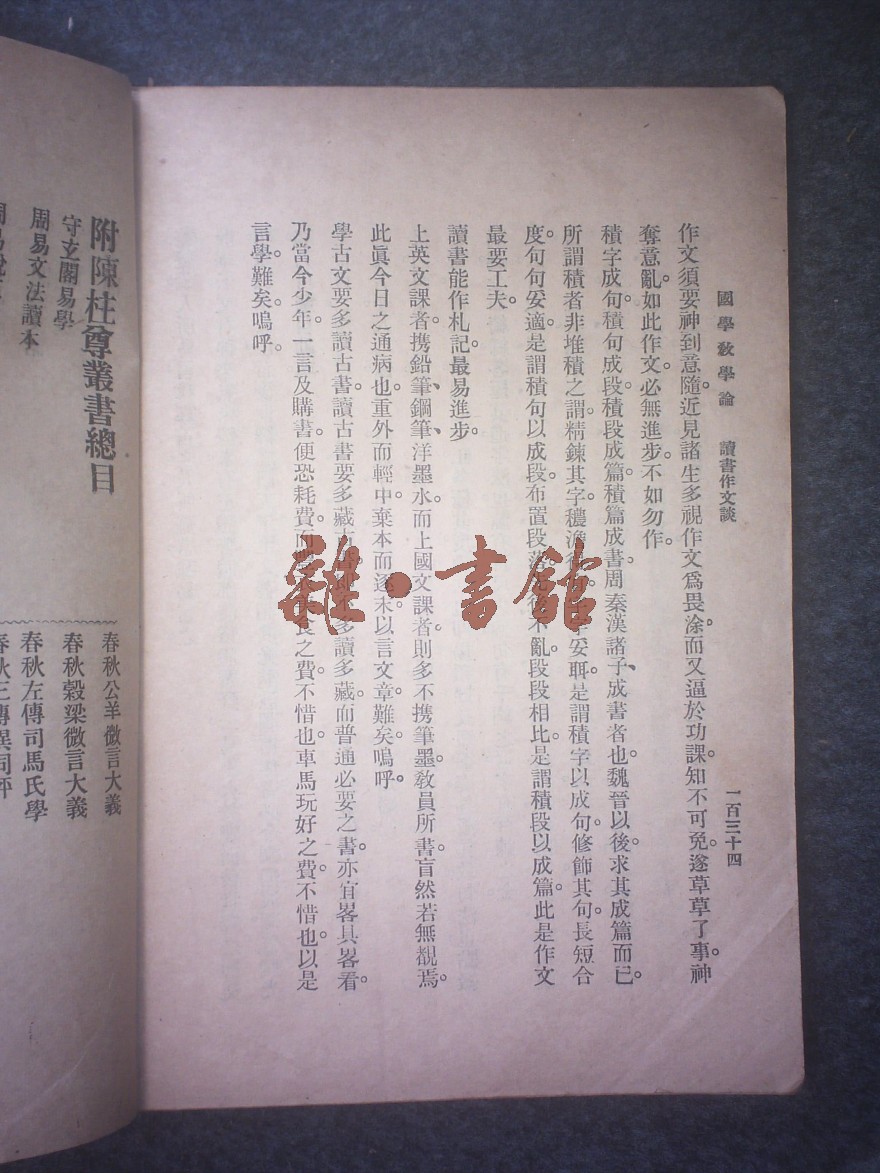 國學教學論　讀書作文談　一百三十四
作文須要神到意隨。近見諸生多視作文爲畏涂。而又逼於功課。知不可免。遂草草了事。神
奪意亂。如此作文。必無進步。不如勿作。
積字成句。積句成段。積段成篇。積篇成書。周秦漢諸子、成書者也。魏晉以後求其成篇而已。
所謂積者非堆積之謂。精鍊其字。穩漁妥聑。是謂積字以成句。修飾其句。長短合
度。句句妥適。是謂積句以成段。布置段落。不亂。段段相比。是謂積段以成篇。此是作文
最要工夫。
讀書能作札記。最易進步。
上英文課者。携鉛筆、鋼筆、洋墨水。而上國文課者。則多不携筆墨。教員所書。盲然若無覩焉。
此眞今日之通病也。重外而輕中。棄本而逐末。以言文章。難矣。嗚呼。
學古文要多讀古書。讀古書要多藏古多讀多藏。而普通必要之書。亦宜畧具畧看。
乃當今少年。一言及購書。便恐耗費。而食之費不惜也。車馬玩好之費。不惜也。以是
言學。難矣。嗚呼。
附陳柱尊叢書總目
守玄閣易學
周易文法讀本
春秋公羊微言大義
春秋穀梁微言大義
春秋左傳司馬氏學
春秋三傳異同評
雜·書館